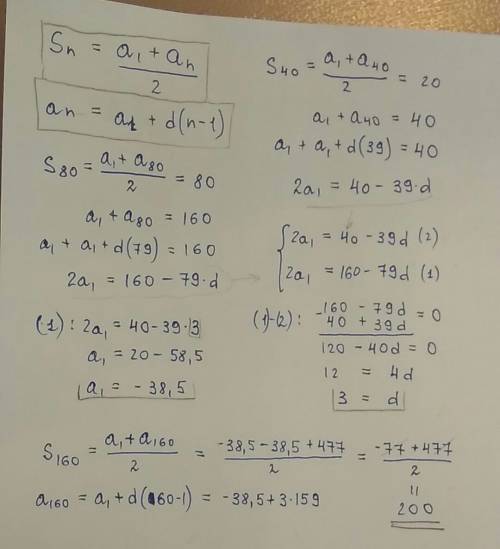 Sn = (a1 + an)/2
an = a1 + d(n-1)
S80 = (a1 + a80)/2 = 80
a1 + a80 = 160
a1 + a1 + d(79) = 160
2a1 = 160 - 79·d
S40 = (a1 + a40)/2 = 20
a1 + a40 = 40
a1 + a1 + d(39) = 40
2a1 = 40 - 39·d
{ 2a1 = 40 - 39d (2)
2a1 = 160 - 79d (1)
(1): 2a1 = 40 - 39·3
a1 = 20 - 58,5
a1 = - 38,5
(1)-(2): -160 - 79d
40 + 39d = 0
120 - 40d = 0
12 = 4d
3 = d
S160 = (a1 + a160)/2 = (-38,5 - 38,5 + 477)/2 = (-77 + 477)/2
=
200
a160 = a1 + d(160-1) = -38,5 + 3·159